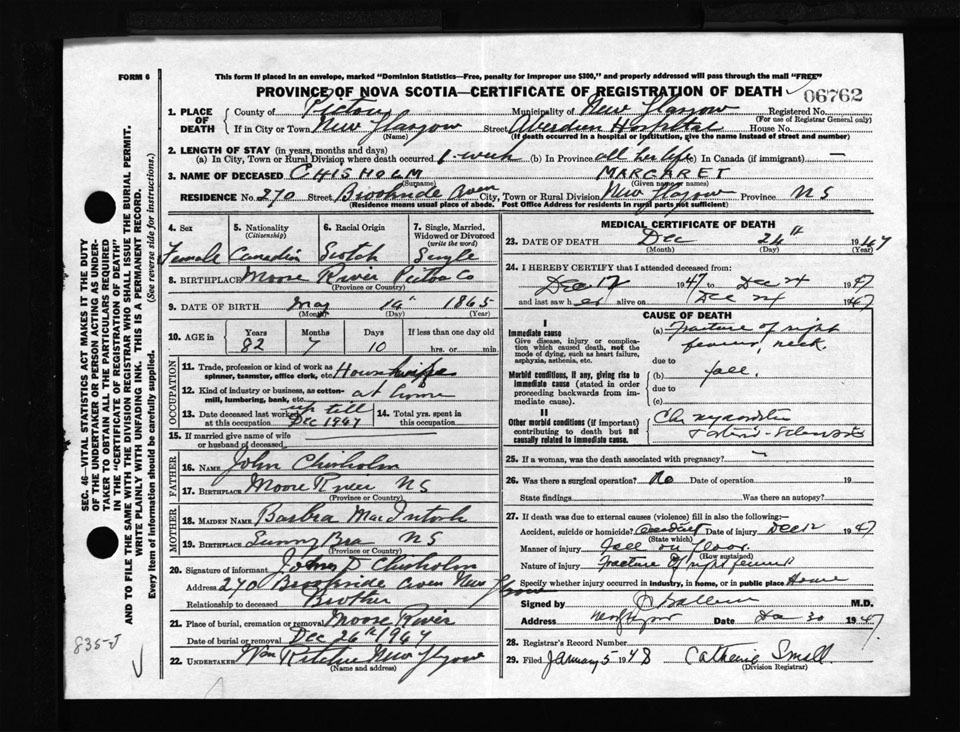 FORM 6
This form if placed in an envelope, marked "Dominion Statistics—Free, penalty for improper use $300," and properly addressed will pass through the mail "FREE"
PROVINCE OF NOVA SCOTIA—CERTIFICATE OF REGISTRATION OF DEATH
06762
1. PLACE OF DEATH
County of Pictou Municipality of New Glasgow Registered No.
(For use of Registrar General only)
If in City or Town New Glasgow Street Aberdeen Hospital House No.
(Name) (If death occurred in a hospital or institution, give the name instead of street and number)
2. LENGTH OF STAY (in years, months and days)
(a) In City, Town or Rural Division where death occurred 1-week (b) In Province all her life (c) In Canada (if immigrant) —
3. NAME OF DECEASED CHISHOLM MARGARET
(Surname) (Given name or names)
RESIDENCE No. 270 Street Brookside Aven City, Town or Rural Division New Glasgow Province NS
(Residence means usual place of abode. Post Office Address for residents in rural parts not sufficient)
4. Sex
Female
5. Nationality
(Citizenship)
Canadian
6. Racial Origin
Scotch
7. Single, Married, Widowed or Divorced
(write the word)
Single
8. BIRTHPLACE Moose River Pictou Co
(Province or Country)
9. DATE OF BIRTH May 14th 1865
(Month) (Day) (Year)
10. AGE in
Years Months Days If less than one day old
82 7 10 hrs. or min.
OCCUPATION
11. Trade, profession or kind of work as spinner, teamster, office clerk, etc. Housewife
12. Kind of industry or business, as cotton-mill, lumbering, bank, etc. at home
13. Date deceased last worked at this occupation up till Dec 1947
14. Total yrs. spent in this occupation
15. If married give name of wife or husband of deceased
FATHER
16. NAME John Chisholm
17. BIRTHPLACE Moose River NS
(Province or Country)
MOTHER
18. MAIDEN NAME Barbra MacIntosh
19. BIRTHPLACE Sunny Brae NS
(Province or Country)
20. Signature of informant James D Chisholm
Address 270 Brookside Aven New Glasgow
Relationship to deceased Brother
21. Place of burial, cremation or removal Moose River
Date of burial or removal Dec 26th 1947
22. UNDERTAKER Wm Ritchie New Glasgow
(Name and address)
MEDICAL CERTIFICATE OF DEATH
23. DATE OF DEATH Dec 24th 1947
(Month) (Day) (Year)
24. I HEREBY CERTIFY that I attended deceased from:
Dec 12 1947 to Dec 24 1947
and last saw her alive on Dec 24 1947
CAUSE OF DEATH
I
Immediate cause
Give disease, injury or complication which caused death, not the mode of dying, such as heart failure, asphyxia, asthenia, etc.
(a) Fracture of right femur, neck.
due to
Morbid conditions, if any, giving rise to immediate cause (stated in order proceeding backwards from immediate cause).
(b) fall.
due to
(c)
II
Other morbid conditions (if important) contributing to death but not causally related to immediate cause.
Chr myocarditis
25. If a woman, was the death associated with pregnancy? —
26. Was there a surgical operation? No Date of operation 19
State findings Was there an autopsy?
27. If death was due to external causes (violence) fill in also the following:-
Accident, suicide or homicide? Accident Date of injury Dec 12 1947
(State which)
Manner of injury fall on floor.
(How sustained)
Nature of injury Fracture of right femur
Specify whether injury occurred in industry, in home, or in public place Home
Signed by M.D.
Address New Glasgow Date Dec 30 1947
28. Registrar's Record Number
29. Filed January 5 1948 Catherine Small.
(Division Registrar)
SEC. 46—VITAL STATISTICS ACT MAKES IT THE DUTY
OF THE UNDERTAKER OR PERSON ACTING AS UNDER-
TAKER TO OBTAIN ALL THE PARTICULARS REQUIRED
IN THE "CERTIFICATE OF REGISTRATION OF DEATH"
AND TO FILE THE SAME WITH THE DIVISION REGISTRAR WHO SHALL ISSUE THE BURIAL PERMIT.
WRITE PLAINLY WITH UNFADING INK. THIS IS A PERMANENT RECORD.
Every item of information should be carefully supplied. (See reverse side for instructions.)
835-J